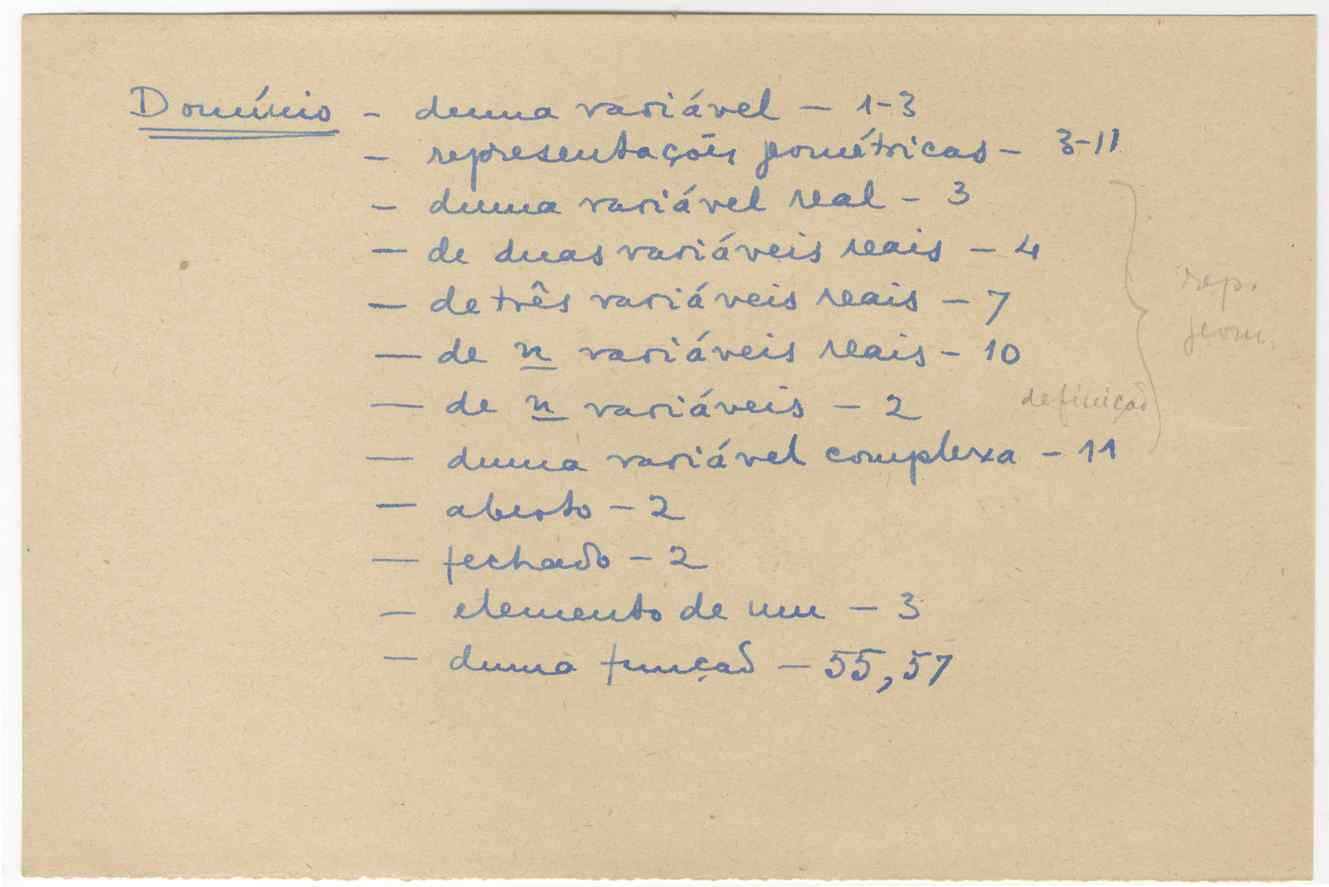 Domínio - duma variável - 1-3
- representações geométricas - 3-11
- duma variável real - 3
- de duas variáveis reais - 4
- de três variáveis reais - 7
- de n variáveis reais - 10
- de n variáveis - 2 definição
- duma variável complexa - 11
- aberto - 2
- fechado - 2
- elemento de um - 3
- duma função - 55, 57
rep.
geom.